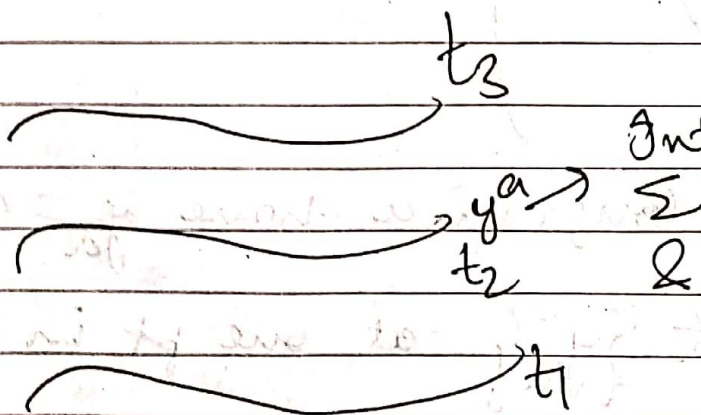 t₃
Int
yᵃ → Σ
t₂ &
t₁